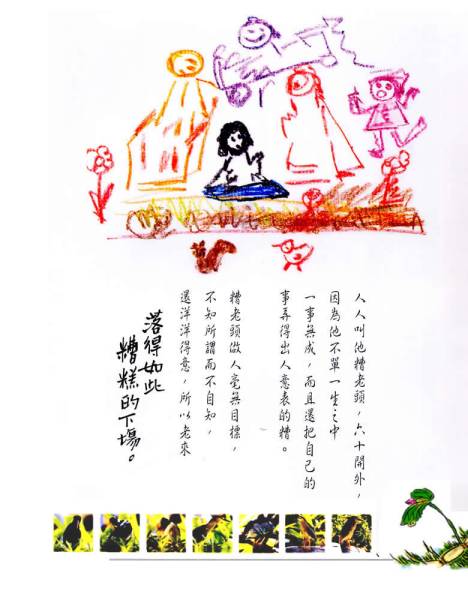 人人叫他糟老頭，六十開外，
因為他不單一生之中
一事無成，而且還把自己的
事弄得出人意表的糟。
糟老頭做人毫無目標，
不知所謂而不自知，
還洋洋得意，所以老來
落得如此
糟糕的下場。